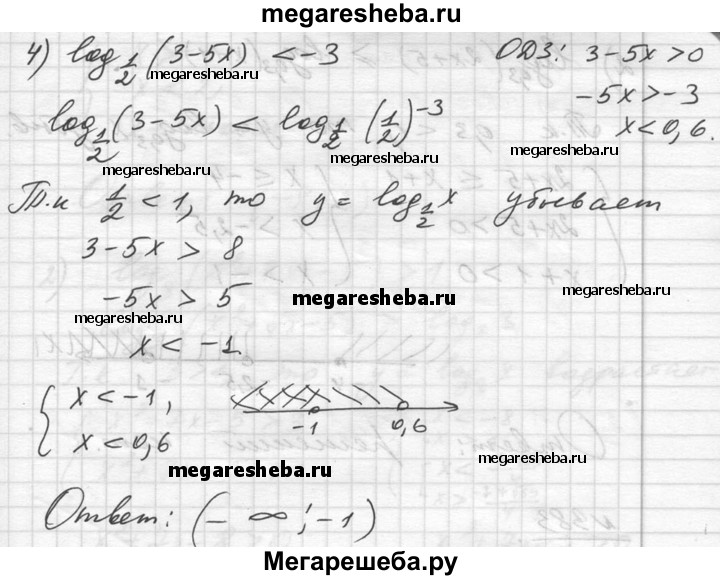 megaresheba.ru
4) log_{1/2} (3-5x) < -3     ОДЗ: 3-5x>0
megaresheba.ru
-5x>-3
megaresheba.ru
log_{1/2} (3-5x) < log_{1/2} (1/2)^{-3}     x<0,6.
megaresheba.ru
megaresheba.ru
Т.к 1/2 < 1, то y = log_{1/2} x убывает
3-5x > 8
megaresheba.ru
-5x > 5
megaresheba.ru
megaresheba.ru
x < -1
{ x < -1,
x < 0,6
-1     0,6
megaresheba.ru
megaresheba.ru
Ответ: (-∞; -1)
megaresheba.ru
Мегарешеба.ру